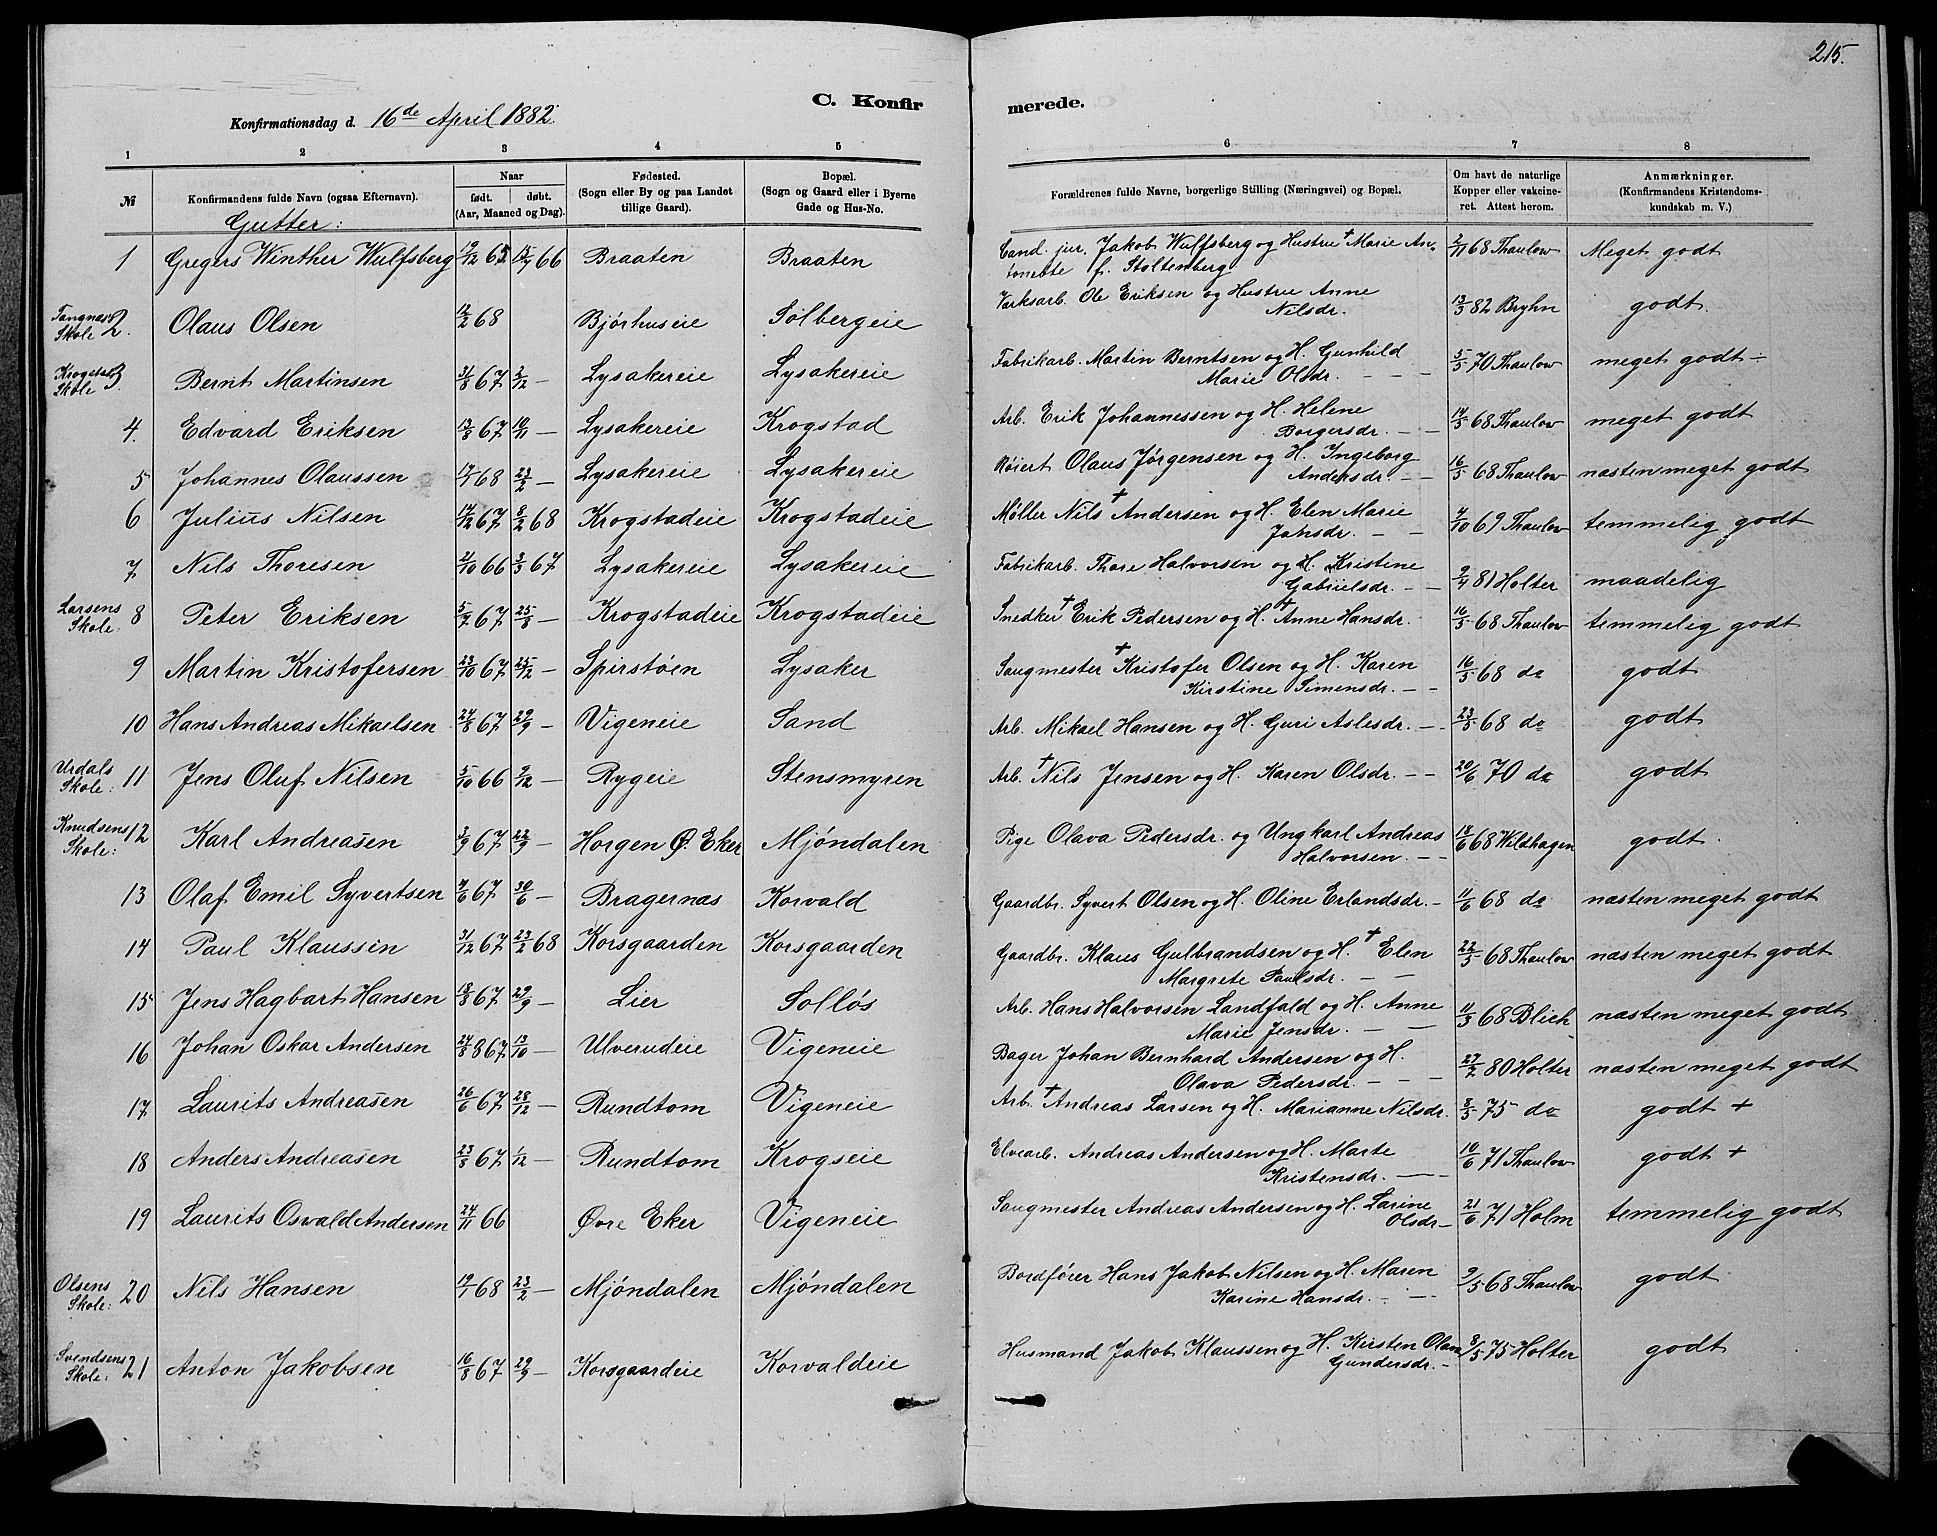 215.
C. Konfir merede.
Konfirmationsdag d. 16de April 1882.
1 2 3 4 5 6 7 8
№ | Konfirmandens fulde Navn (ogsaa Efternavn). | Naar født. døbt. (Aar, Maaned og Dag). | Fødested. (Sogn eller By og paa Landet tillige Gaard). | Bopæl. (Sogn og Gaard eller i Byerne Gade og Hus-No. | Forældrenes fulde Navne, borgerlige Stilling (Næringsvei) og Bopæl. | Om havt de naturlige Kopper eller vakcineret. Attest herom. | Anmærkninger. (Konfirmandens Kristendomskundskab m. V.)
Gutter:
1 Gregers Winther Wulfsberg 19/12 65 15/7 66 Braaten Braaten Cand. jur. Jakob Wulfsberg og Hustru † Marie Antonette f. Stoltenberg 2/11 68 Thaulow Meget godt
Tangnæs Skole 2. Olaus Olsen 12/2 68 Bjórhuseie Solbergeie Værksarb. Ole Eriksen og Hustru Anne Nilsdr. 13/3 82 Bryhn godt.
Krogstad Skole 3. Bernt Martinsen 31/8 67 2/12 — Lysakereie Lysakereie Fabrikarb. Martin Berntsen og H. Gunhild Marie Olsdr. — — — 5/5 70 Thaulow meget godt —
4. Edvard Eriksen 12/8 67 10/11 — Lysakereie Krogstad Arb. Erik Johannessen og H. Helene Borgersdr. — — 14/5 68 Thaulow meget godt
5 Johannes Olaussen 17/1 68 23/2 — Lysakereie Lysakereie Róiert Olaus Jórgensen og H. Ingeborg Andersdr. — — 16/5 68 Thaulow næsten meget godt
6 Julius Nilsen 17/12 67 8/2 68 Krogstadeie Krogstadeie Møller Nils † Andersen og H. Elen Marie Jahsdr. — — 4/10 69 Thaulow temmelig godt
7 Nils Thoresen 21/10 66 3/3 67 Lysakereie Lysakereie Fabrikarb. Thore Halvorsen og H. Kristine Gabrielsdr. — — 9/4 81 Holter maadelig
Larsens Skole: 8 Peter Eriksen 5/7 67 25/8 — Krogstadeie Krogstadeie Snedker † Erik Pedersen og H. † Anne Hansdr. 16/5 68 Thaulow temmelig godt
9 Martin Kristofersen 23/10 67 25/12 — Spirstóen Lysaker Saugmester † Kristofer Olsen og H. Karen Kirstine Simensdr. — — 16/5 68 do godt
10 Hans Andreas Mikaelsen 24/8 67 29/9 — Vigeneie Sand Arb. Mikael Hansen og H. Guri Aslesdr. — — 23/5 68 do godt
Urdals Skole: 11 Jens Oluf Nilsen 5/10 66 9/12 — Rygeie Stensmyren Arb. † Nils Jensen og H. Karen Olsdr. — — 20/6 70 do godt
Knudsens Skole: 12 Karl Andreasen 3/9 67 22/9 — Horgen Ø. Eker Mjóndalen Pige Olava Pedersdr. og Ungkarl Andreas Halvorsen. — — 18/6 68 Wildhagen godt
13 Olaf Emil Syvertsen 7/6 67 30/6 — Bragernæs Korvald Gaardbr. Syvert Olsen og H. Oline Erlandsdr. — 11/6 68 do næsten meget godt
14 Paul Klaussen 31/12 67 23/2 68 Korsgaarden Korsgaarden Gaardbr. Klaus Gulbrandsen og H. † Elen Margrete Paulsdr. — — 22/5 68 Thaulow næsten meget godt
15 Jens Hagbart Hansen 18/8 67 29/9 — Lier Sollós Arb. Hans Halvorsen Landfald og H. Anne Marie Jensdr. — — 11/3 68 Blich næsten meget godt
16 Johan Oskar Andersen 24/8 867 13/10 — Ulverudeie Vigeneie Bager Johan Bernhard Andersen og H. Olava Pedersdr. — — — 27/2 80 Holter næsten meget godt
17 Laurits Andreasen 26/6 67 28/12 — Rundtom Vigeneie Arb. † Andreas Larsen og H. Marianne Nilsdr. 8/5 75 do godt +
18 Anders Andreasen 23/8 67 1/12 — Rundtom Krogseie Elvearb. Andreas Andersen og H. Marte Kristensdr. — — 10/6 71 Thaulow godt +
19 Laurits Oswald Andersen 24/11 66 Øvre Eker Vigeneie Saugmester Andreas Andersen og H. Larine Olsdr — 21/6 71 Holm temmelig godt
Olsens Skole: 20 Nils Hansen 19/1 68 23/2 — Mjóndalen Mjóndalen Bordfórer Hans Jakob Nilsen og H. Maren Karine Hansdr. — — 9/5 68 Thaulow godt
Svendsens Skole: 21 Anton Jakobsen 16/8 67 29/9 — Korsgaardeie Korvaldeie Husmand Jakob Klaussen og H. Kirsten Olava Gundersdr. — 8/5 75 Holter godt